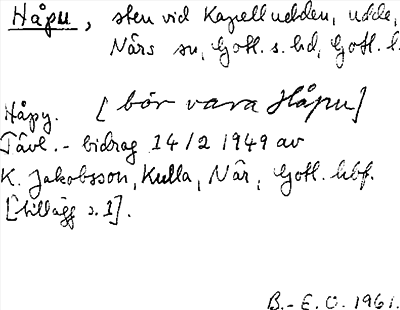 Håpu, sten vid Kapelludden, udde,
Närs sn, Gotl. s. hd, Gotl. l.
Håpy. [bör vara Håpu]
Tävl.-bidrag 14/2 1949 av
K. Jakobsson, Kulla, När, Gotl.
[tillägg s. 1].
B.-E. O. 1961.